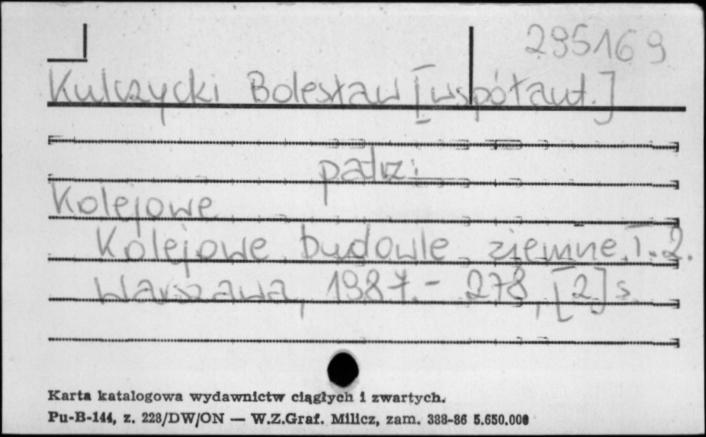 295169
Kulczycki Bolesław [współaut.]
patrz:
Kolejowe
Kolejowe budowle ziemne. T. 2.
Warszawa, 1987. - 278, [2] s.
Karta katalogowa wydawnictw ciągłych i zwartych.
Pu-B-144, z. 228/DW/ON — W.Z.Graf. Milicz, zam. 388-86 5.650.000